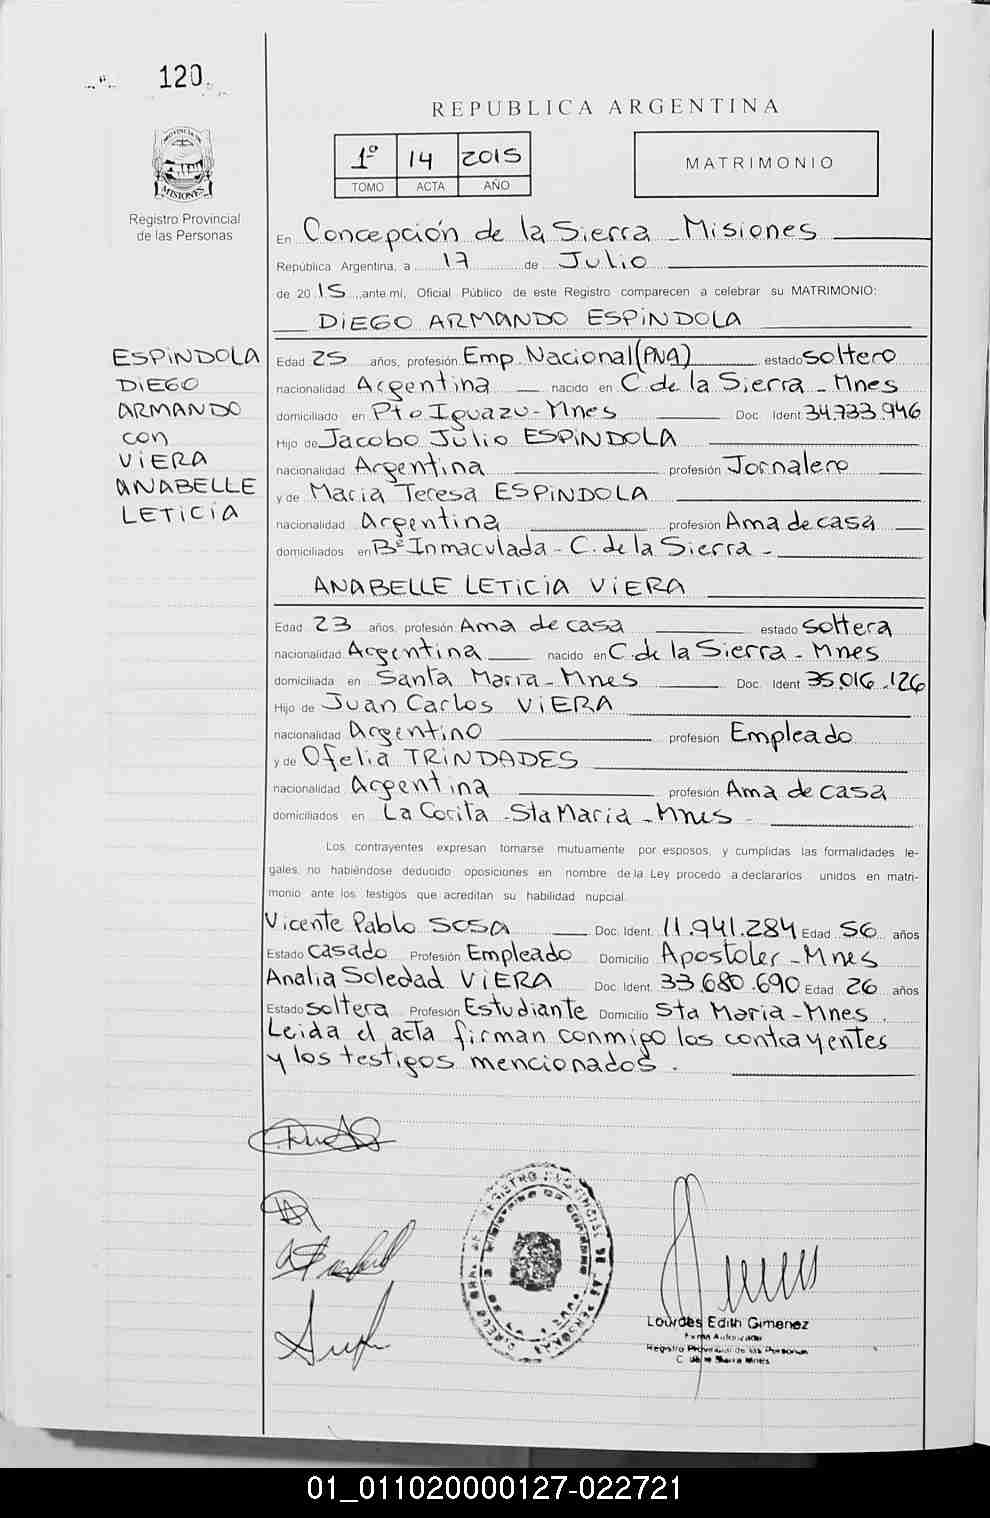 120
REPUBLICA ARGENTINA
1º 14 2015
TOMO ACTA AÑO
MATRIMONIO
MISIONES
Registro Provincial
de las Personas
En Concepción de la Sierra - Misiones
República Argentina, a 17 de Julio
de 2015, ante mí, Oficial Público de este Registro comparecen a celebrar su MATRIMONIO:
DIEGO ARMANDO ESPINDOLA
ESPINDOLA
DIEGO
ARMANDO
con
VIERA
ANABELLE
LETICIA
Edad 25 años, profesión Emp. Nacional (PNA) estado soltero
nacionalidad Argentina nacido en C. de la Sierra - Mnes
domiciliado en Pto Iguazu - Mnes Doc. Ident 34.733.946
Hijo de Jacobo Julio ESPINDOLA
nacionalidad Argentina profesión Jornalero
y de Maria Teresa ESPINDOLA
nacionalidad Argentina profesión Ama de casa
domiciliados en Bº Inmaculada - C. de la Sierra -
ANABELLE LETICIA VIERA
Edad 23 años, profesión Ama de casa estado soltera
nacionalidad Argentina nacido en C. de la Sierra - Mnes
domiciliada en Santa Maria - Mnes Doc. Ident 35.016.126
Hijo de Juan Carlos VIERA
nacionalidad Argentino profesión Empleado
y de Ofelia TRINDADES
nacionalidad Argentina profesión Ama de casa
domiciliados en La Corita - Sta Maria - Mnes -
Los contrayentes expresan tomarse mutuamente por esposos, y cumplidas las formalidades le-
gales, no habiéndose deducido oposiciones en nombre de la Ley procedo a declararlos unidos en matri-
monio ante los testigos que acreditan su habilidad nupcial.
Vicente Pablo SOSA Doc. Ident. 11.941.284 Edad 56 años
Estado casado Profesión Empleado Domicilio Apostoles - Mnes
Analia Soledad VIERA Doc. Ident. 33.680.690 Edad 26 años
Estado soltera Profesión Estudiante Domicilio Sta Maria - Mnes.
Leida el acta firman conmigo los contrayentes
y los testigos mencionados.
Lourdes Edith Gimenez
Firma Autorizada
Registro Provincial de las Personas
C. de la Sierra Mnes
01_011020000127-022721